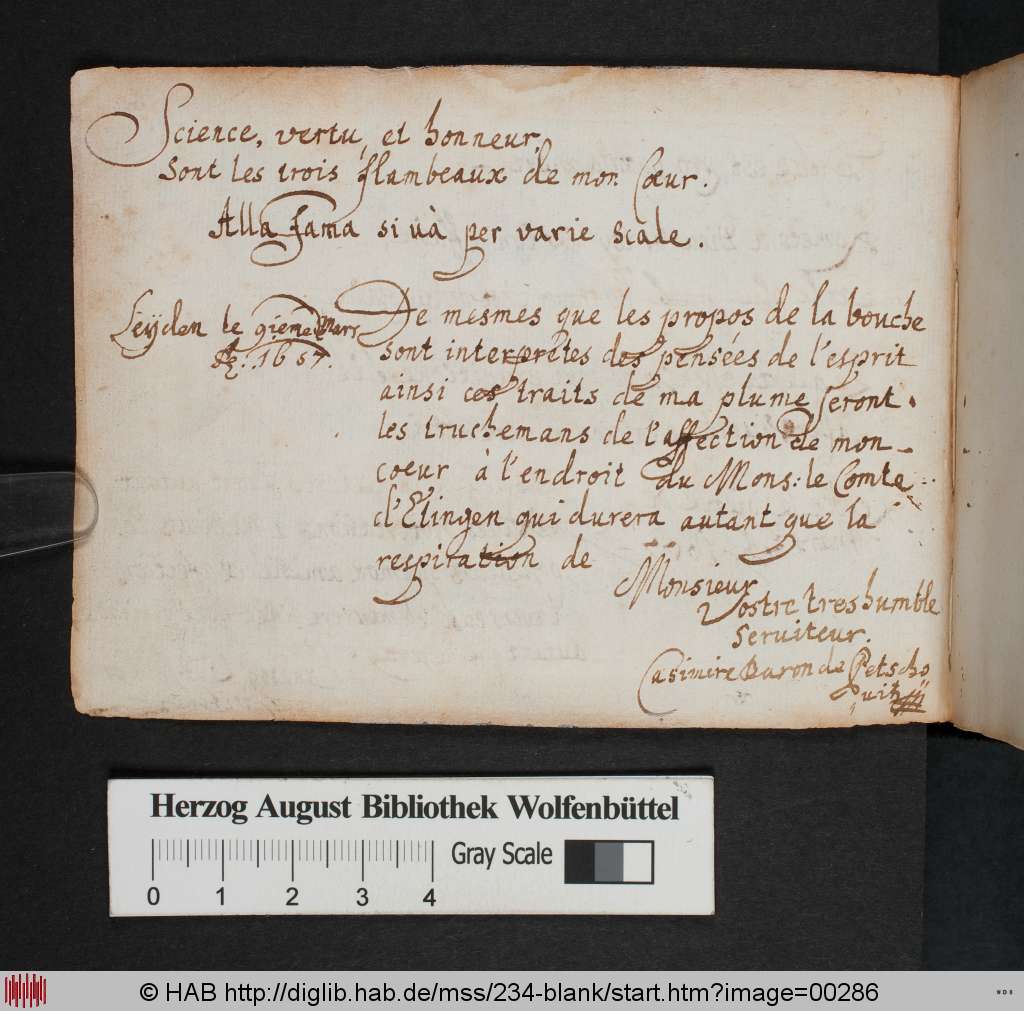 Science, vertu, et honneur,
Sont les trois flambeaux de mon Cœur.
Alla fama si uà per varie scale.
Leyden le 9ieme Mars
1657.
De mesmes que les propos de la bouche
sont interprètes des pensées de l'esprit
ainsi ces traits de ma plume seront
les truchemans de l'affection de mon
coeur à l'endroit du Mons: le Comte
d'Etingen qui durera autant que la
respiration de
Monsieur
Vostre tres humble
seruiteur.
Casimire Baron de Petscho
uitz
Herzog August Bibliothek Wolfenbüttel
Gray Scale
0 1 2 3 4
© HAB http://diglib.hab.de/mss/234-blank/start.htm?image=00286